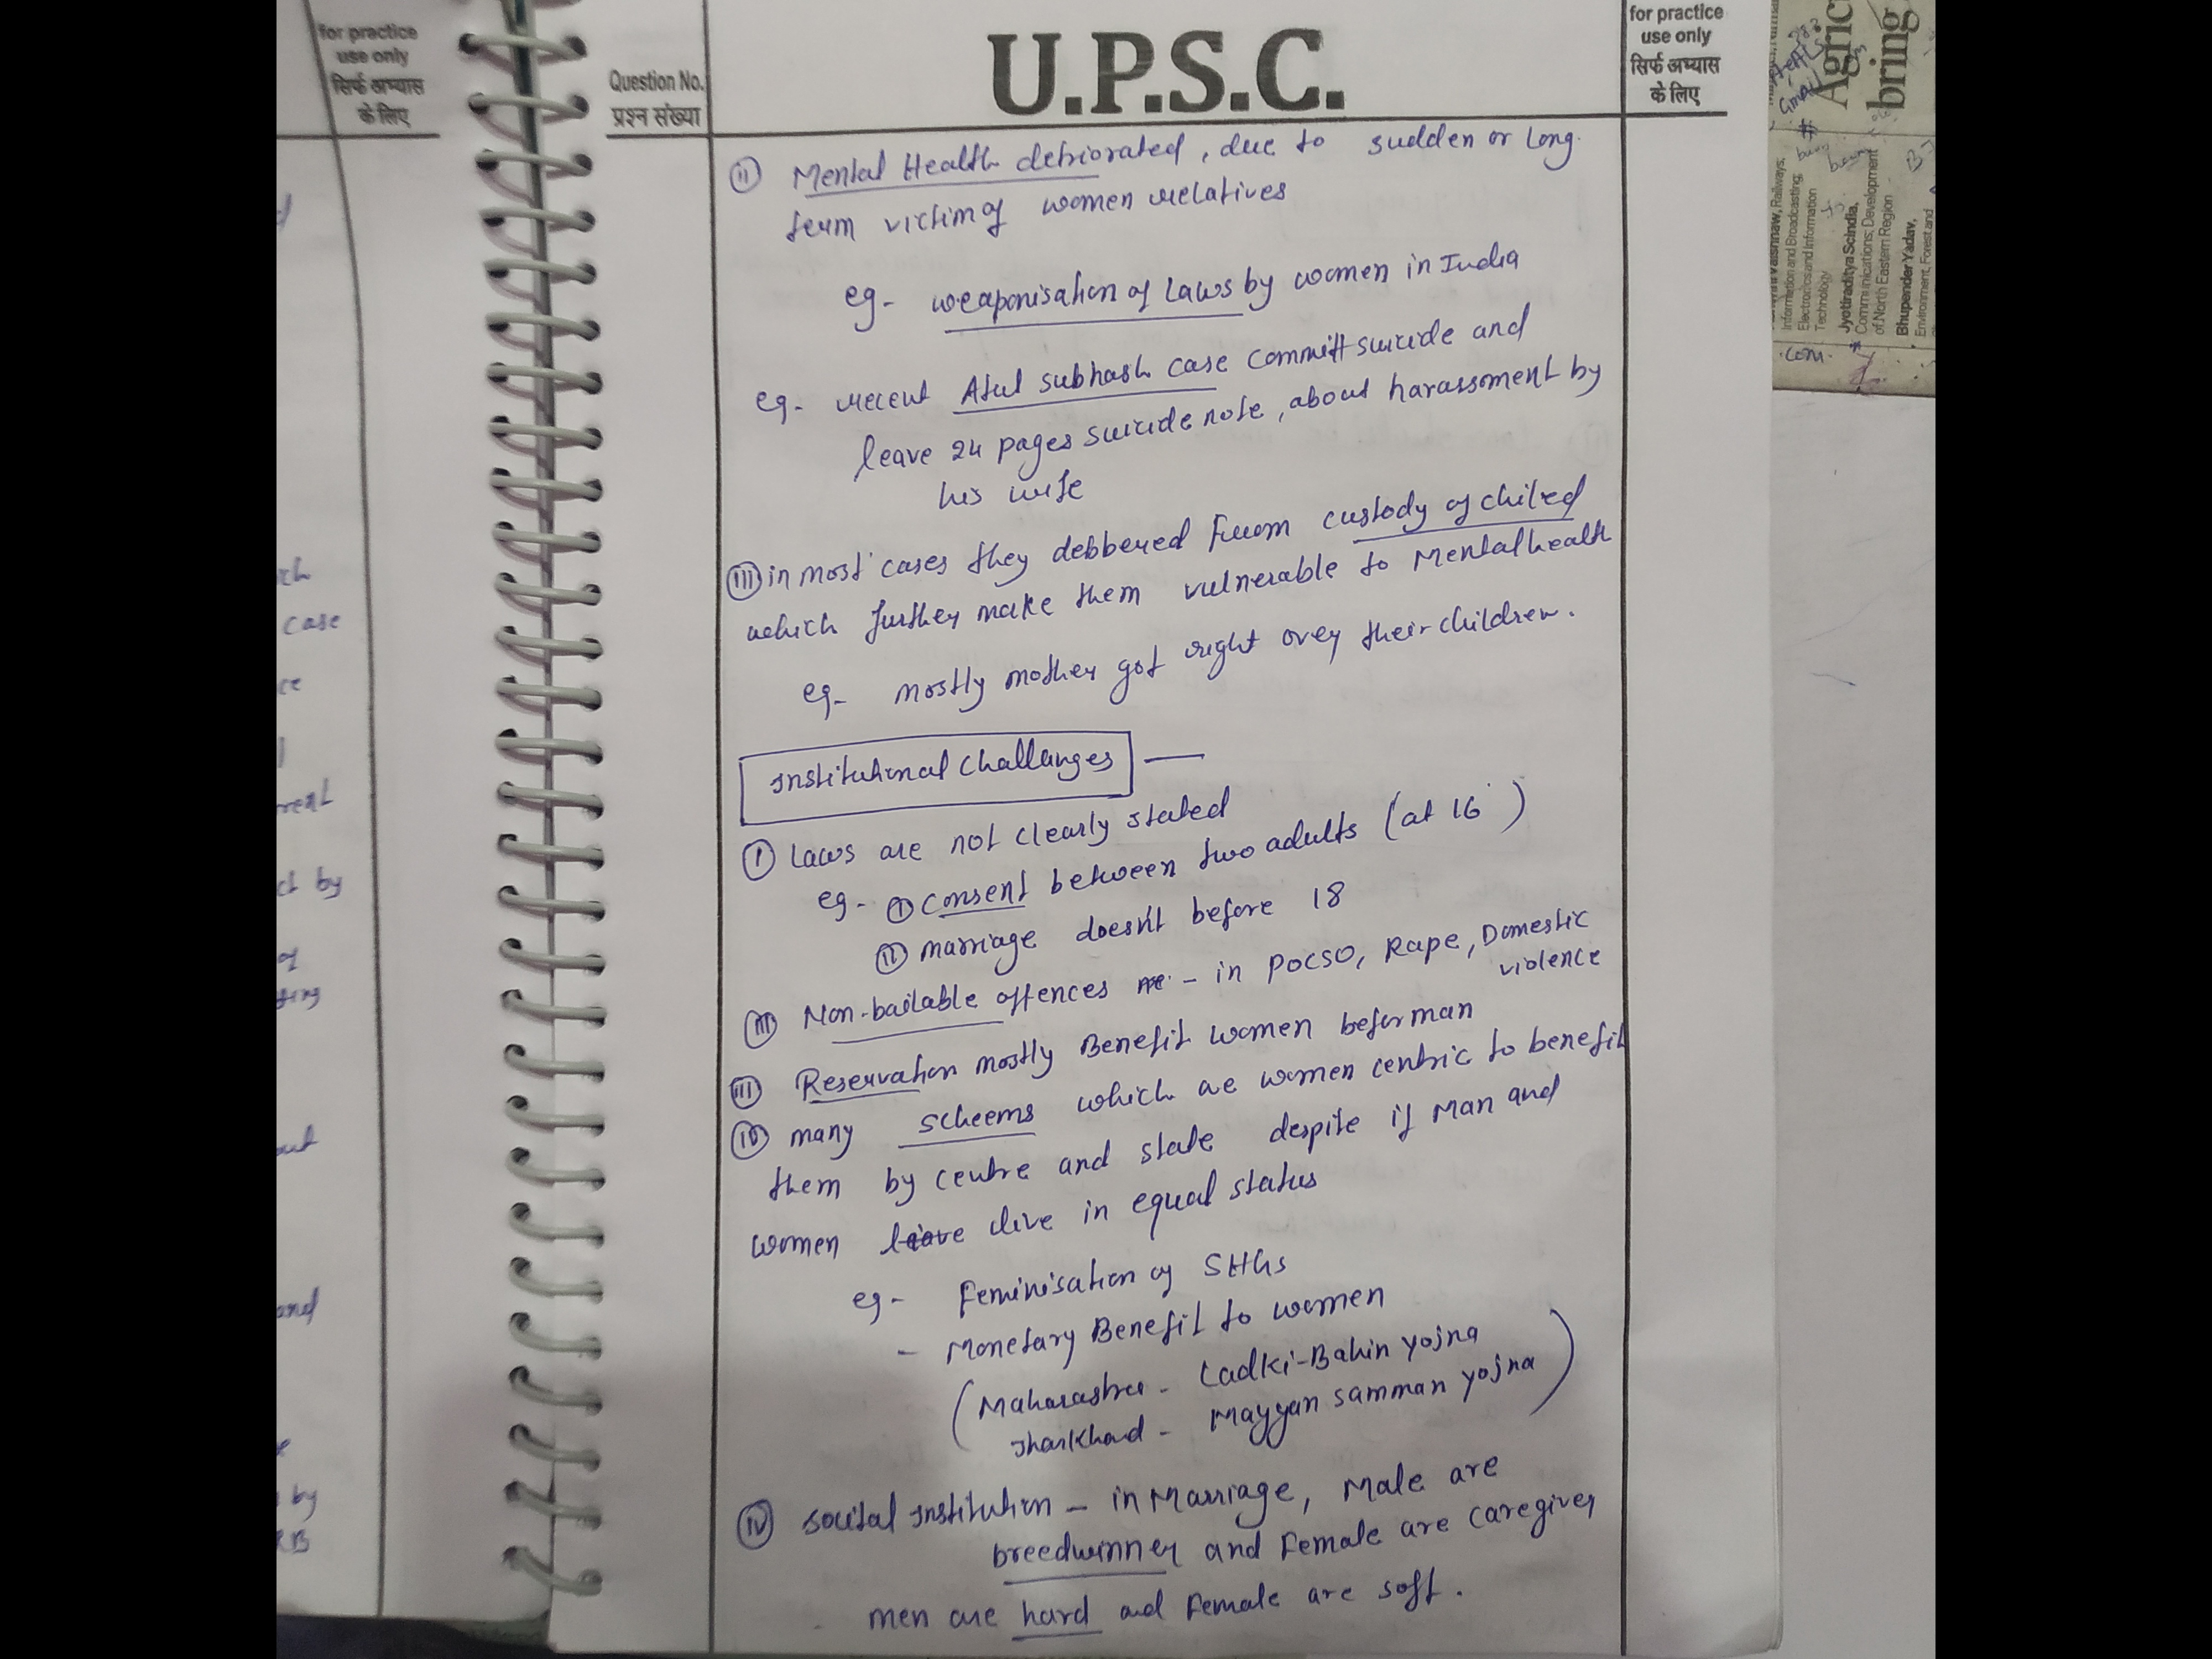 for practice
use only
सिर्फ अभ्यास
के लिए
ch
case
ce
rent
ct by
of
and
by
RB
Question No.
प्रश्न संख्या
U.P.S.C.
for practice
use only
सिर्फ अभ्यास
के लिए
(ii) Mental Health detriorated, due to sudden or long
term victim of women relatives
eg- weaponisation of Laws by women in India
eg- recent Atul subhash case committ suicide and
leave 24 pages suicide note, about harassment by
his wife
(iii) in most cases they debbered From custody of chiled
which further make them vulnerable to Mental health
eg- mostly mother got right over their children.
Institutional Challanges —
(i) Laws are not clearly stated
eg- (i) consent between two adults (at 16)
(ii) marriage doesn't before 18
(iii) Non-bailable offences - in POCSO, Rape, Domestic
violence
(iii) Reservation mostly Benefit women befor man
(iv) many scheems which are women centric to benefit
them by centre and state despite if Man and
women live in equal status
eg- Feminisation of SHGs
- Monetary Benefit to women
(Maharashtra - Ladki-Bahin yojna
Jharkhand - Mayyan samman yojna)
(iv) socital institution - in Marriage, Male are
breedwinner and Female are caregiver
men are hard and Female are soft.
Agric
bring
Vaishnaw, Railways,
Information and Broadcasting;
Electronics and Information
Technology
Jyotiraditya Scindia,
Communications; Development
of North Eastern Region
Bhupender Yadav,
Environment, Forest and
.com.